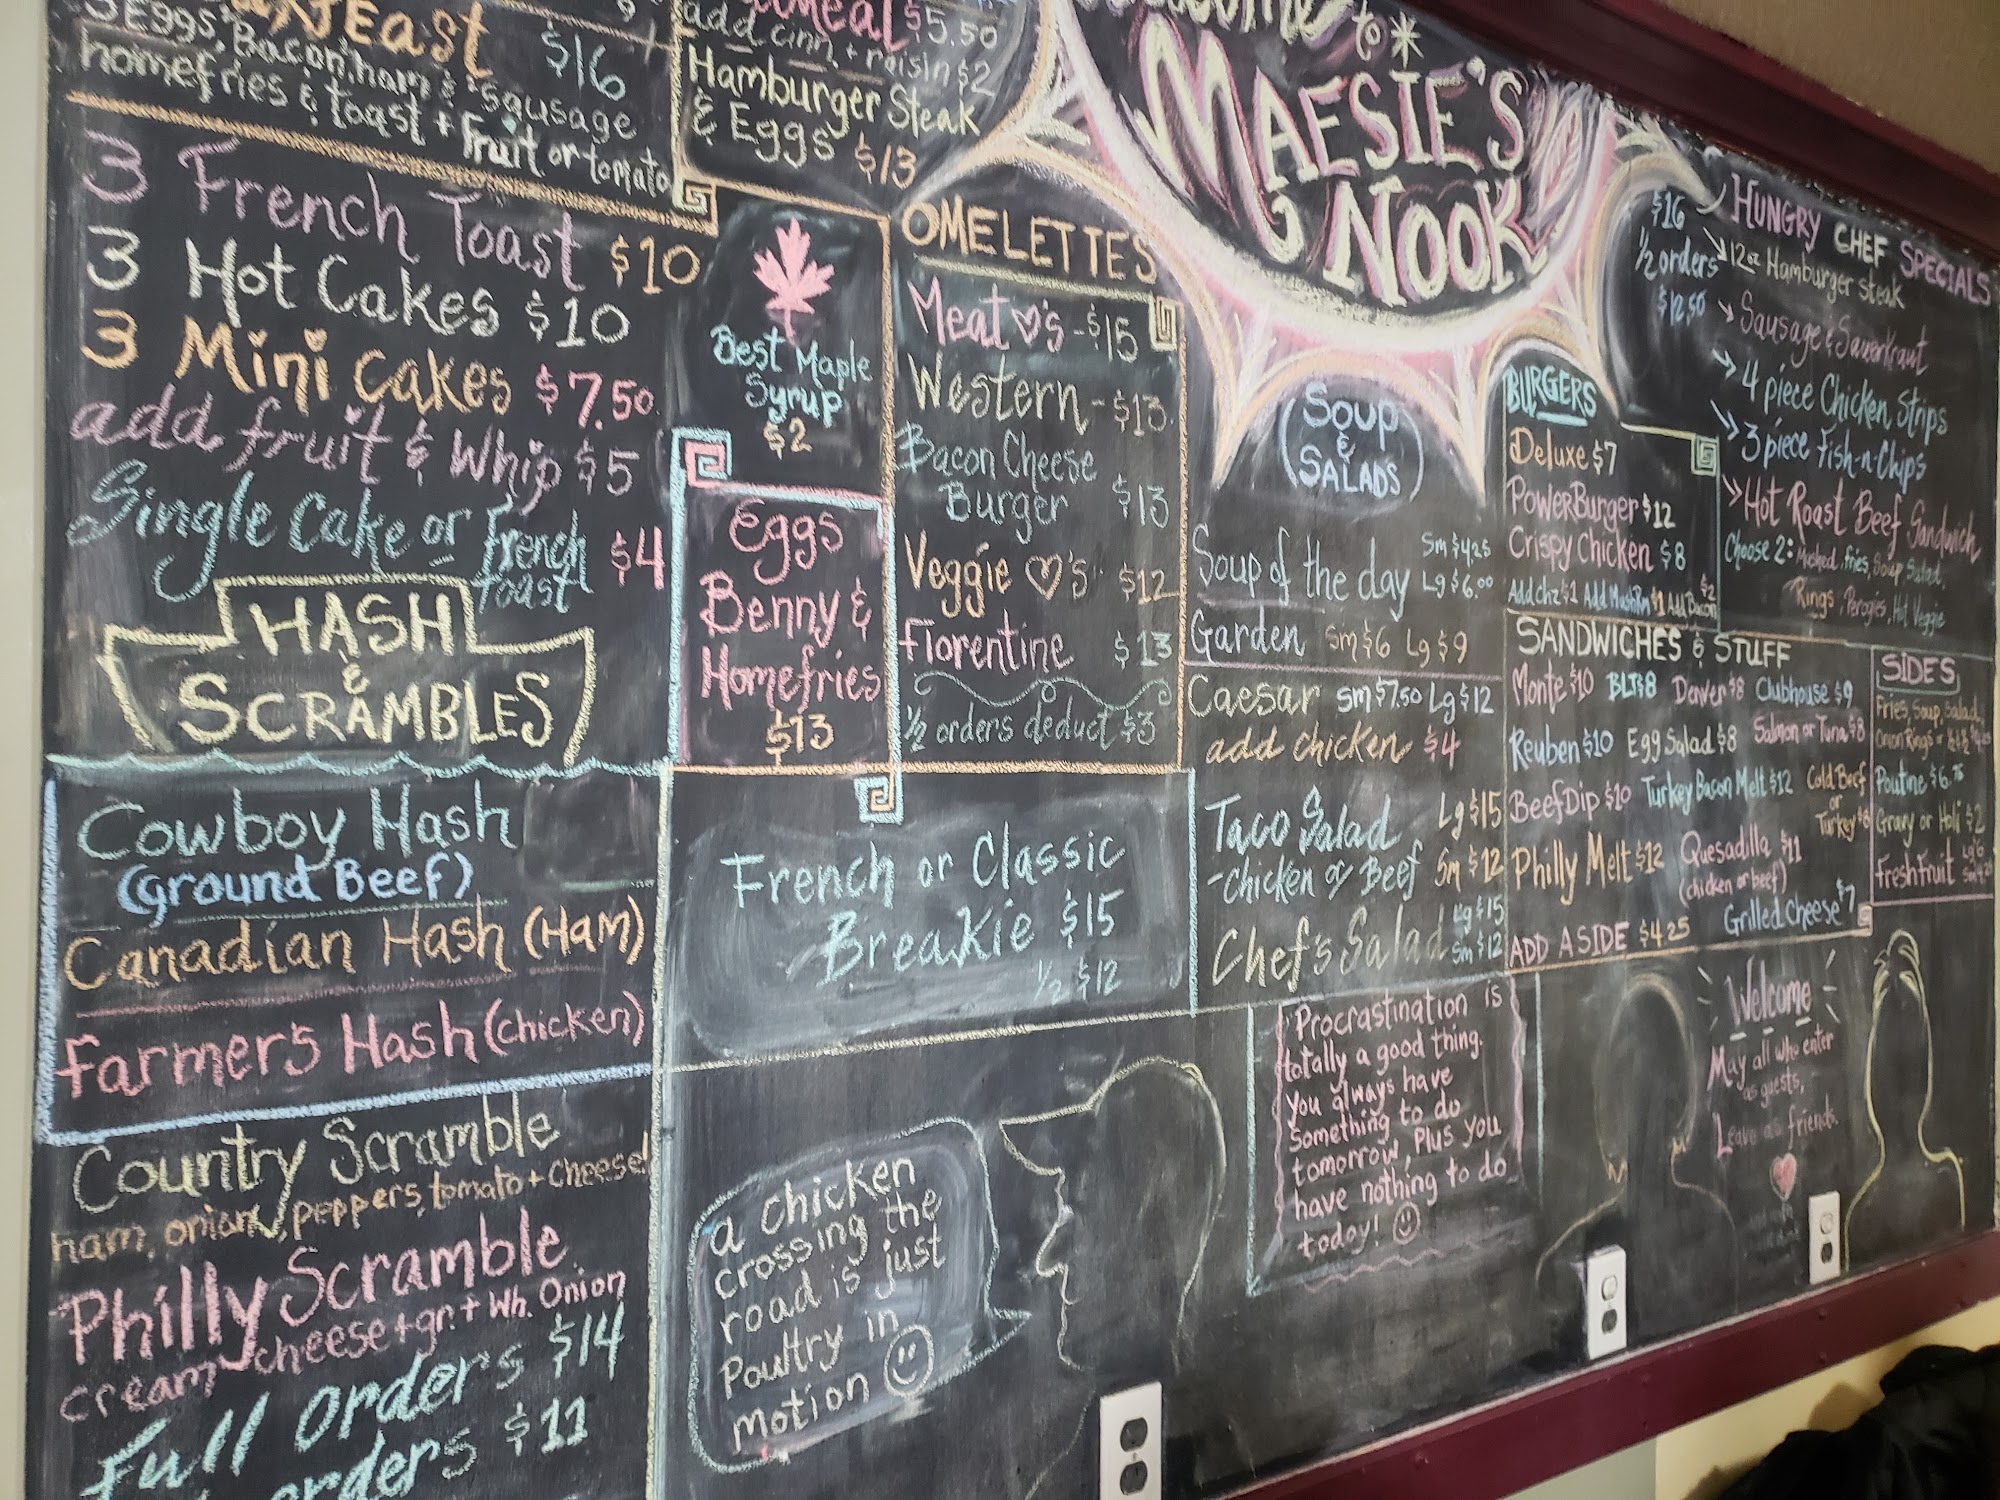 Feast $16
3 Eggs, Bacon, ham & sausage
homefries & toast + fruit or tomato
$5.50
add cinn + raisin $2
Hamburger Steak
& Eggs $13
to
MAESIE'S
NOOK
3 French Toast $10
3 Hot Cakes $10
3 Mini Cakes $7.50
add fruit & Whip $5
Single Cake or French
Toast $4
Best Maple
Syrup
$2
Eggs
Benny &
Homefries
$13
HASH
&
SCRAMBLES
Cowboy Hash
(Ground Beef)
Canadian Hash (Ham)
Farmer's Hash (chicken)
Country Scramble
ham, onion, peppers, tomato + Cheese
Philly Scramble
cream cheese + gr. + Wh. Onion
Full orders $14
orders $11
OMELETTES
Meat ♡'s - $15
Western - $13
Bacon Cheese
Burger $13
Veggie ♡'s $12
Florentine $13
1/2 orders deduct $3
French or Classic
Breakie $15
1/2 $12
a chicken
crossing the
road is just
Poultry in
motion ☺
Soup
&
SALADS
Soup of the day Sm $4.25
Lg $6.00
Garden Sm $6 Lg $9
Caesar Sm $7.50 Lg $12
add chicken $4
Taco Salad Lg $15
- Chicken or Beef Sm $12
Chef's Salad Lg $15
Sm $12
Procrastination is
totally a good thing.
You always have
Something to do
tomorrow, Plus you
have nothing to do
today! ☺
BURGERS
Deluxe $7
PowerBurger $12
Crispy Chicken $8
Add chz $1 Add MushRm $1 Add Bacon $2
SANDWICHES & STUFF
Monte $10 BLT $8 Denver $8 Clubhouse $9
Reuben $10 Egg Salad $8 Salmon or Tuna $8
Beef Dip $10 Turkey Bacon Melt $12 Cold Beef
or
Turkey $8
Philly Melt $12 Quesadilla $11
(chicken or beef)
Grilled Cheese $7
ADD A SIDE $4.25
HUNGRY CHEF SPECIALS
$16
1/2 orders
$12.50
12oz Hamburger steak
Sausage & Sauerkraut
4 piece Chicken Strips
3 piece Fish-n-Chips
Hot Roast Beef Sandwich
Choose 2: Mashed, fries, Soup, Salad,
Rings, Perogies, Hot Veggie
SIDES
Fries, Soup, Salad,
Onion Rings
Poutine $6.75
Gravy or Holi $2
Fresh Fruit Lg $6
Welcome
May all who enter
as guests,
Leave as friends.